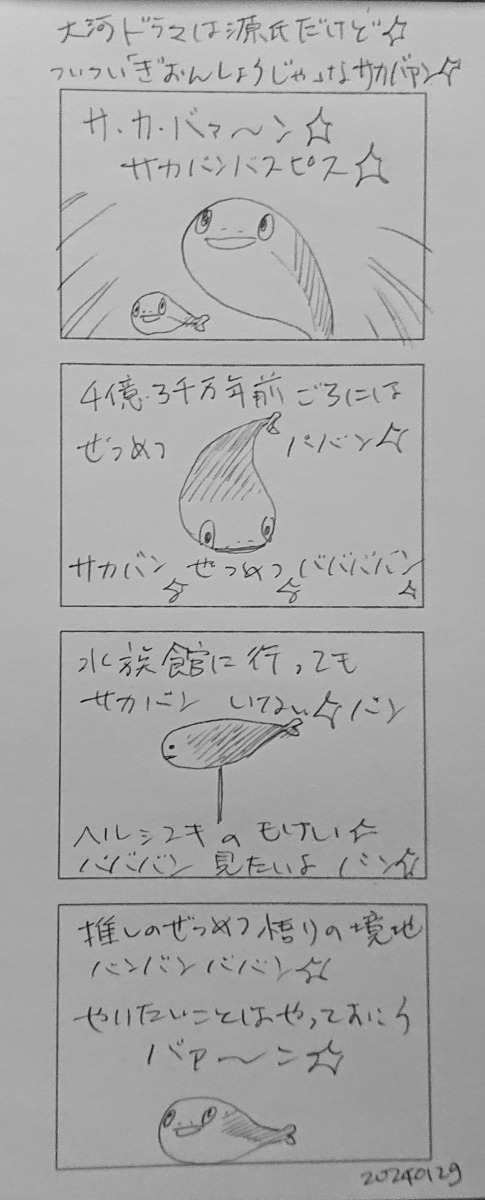 大河ドラマは源氏だけど☆
ついつい「ぎおんしょうじゃ」なサカバァン☆
サ・カ・バァ〜ン☆
サカバンバスピス☆
4億3千万年前ごろには
ぜつめつ パバン☆
サカバン☆ぜつめつ☆バババババン☆
水族館に行っても
サカバン いてない☆バン
ヘルシンキのもけい☆
バババン 見たいよ バン☆
推しのぜつめつ 悟りの境地
バンバンババン☆
やりたいことはやっておこう
バァ〜ン☆
20240129